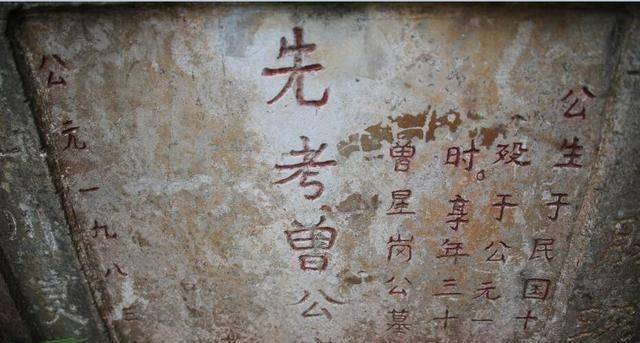 公生于民国十
殁于公元一
时。享年三十
曾星岗公墓
先考曾公
公元一九八三